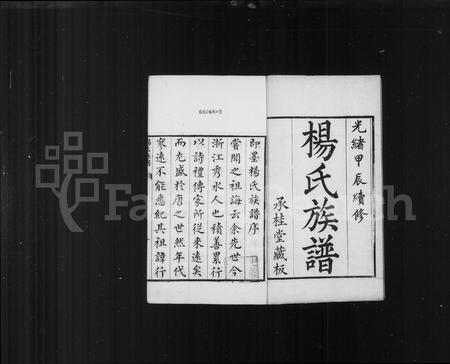 光緒甲辰續修
楊氏族譜
承桂堂藏板
即墨楊氏族譜序
嘗聞之祖誨云余先世今
浙江秀水人也積善累行
以詩禮傳家所從來遠矣
而尤盛於唐之世然年代
寥遠不能悉紀其祖諱行
FamilySearch